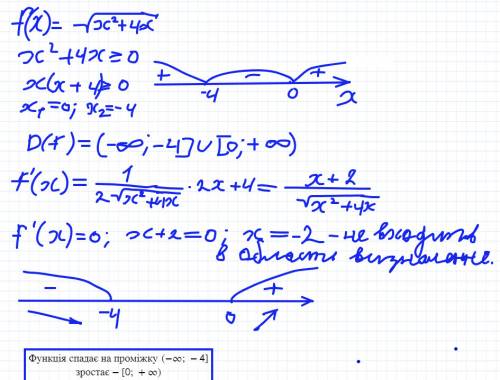 f(x) = √x²+4x
x²+4x ≥ 0
x(x+4) ≥ 0
x₁=0; x₂=-4
+ − +
-4 0 x
D(f) = (-∞; -4] ∪ [0; +∞)
f'(x) = 1/(2√x²+4x) · 2x+4 = (x+2)/(√x²+4x)
f'(x)=0; x+2=0; x=-2 - не входить
в області визначення.
− +
-4 0
Функція спадає на проміжку (−∞; −4]
зростає − [0; +∞)